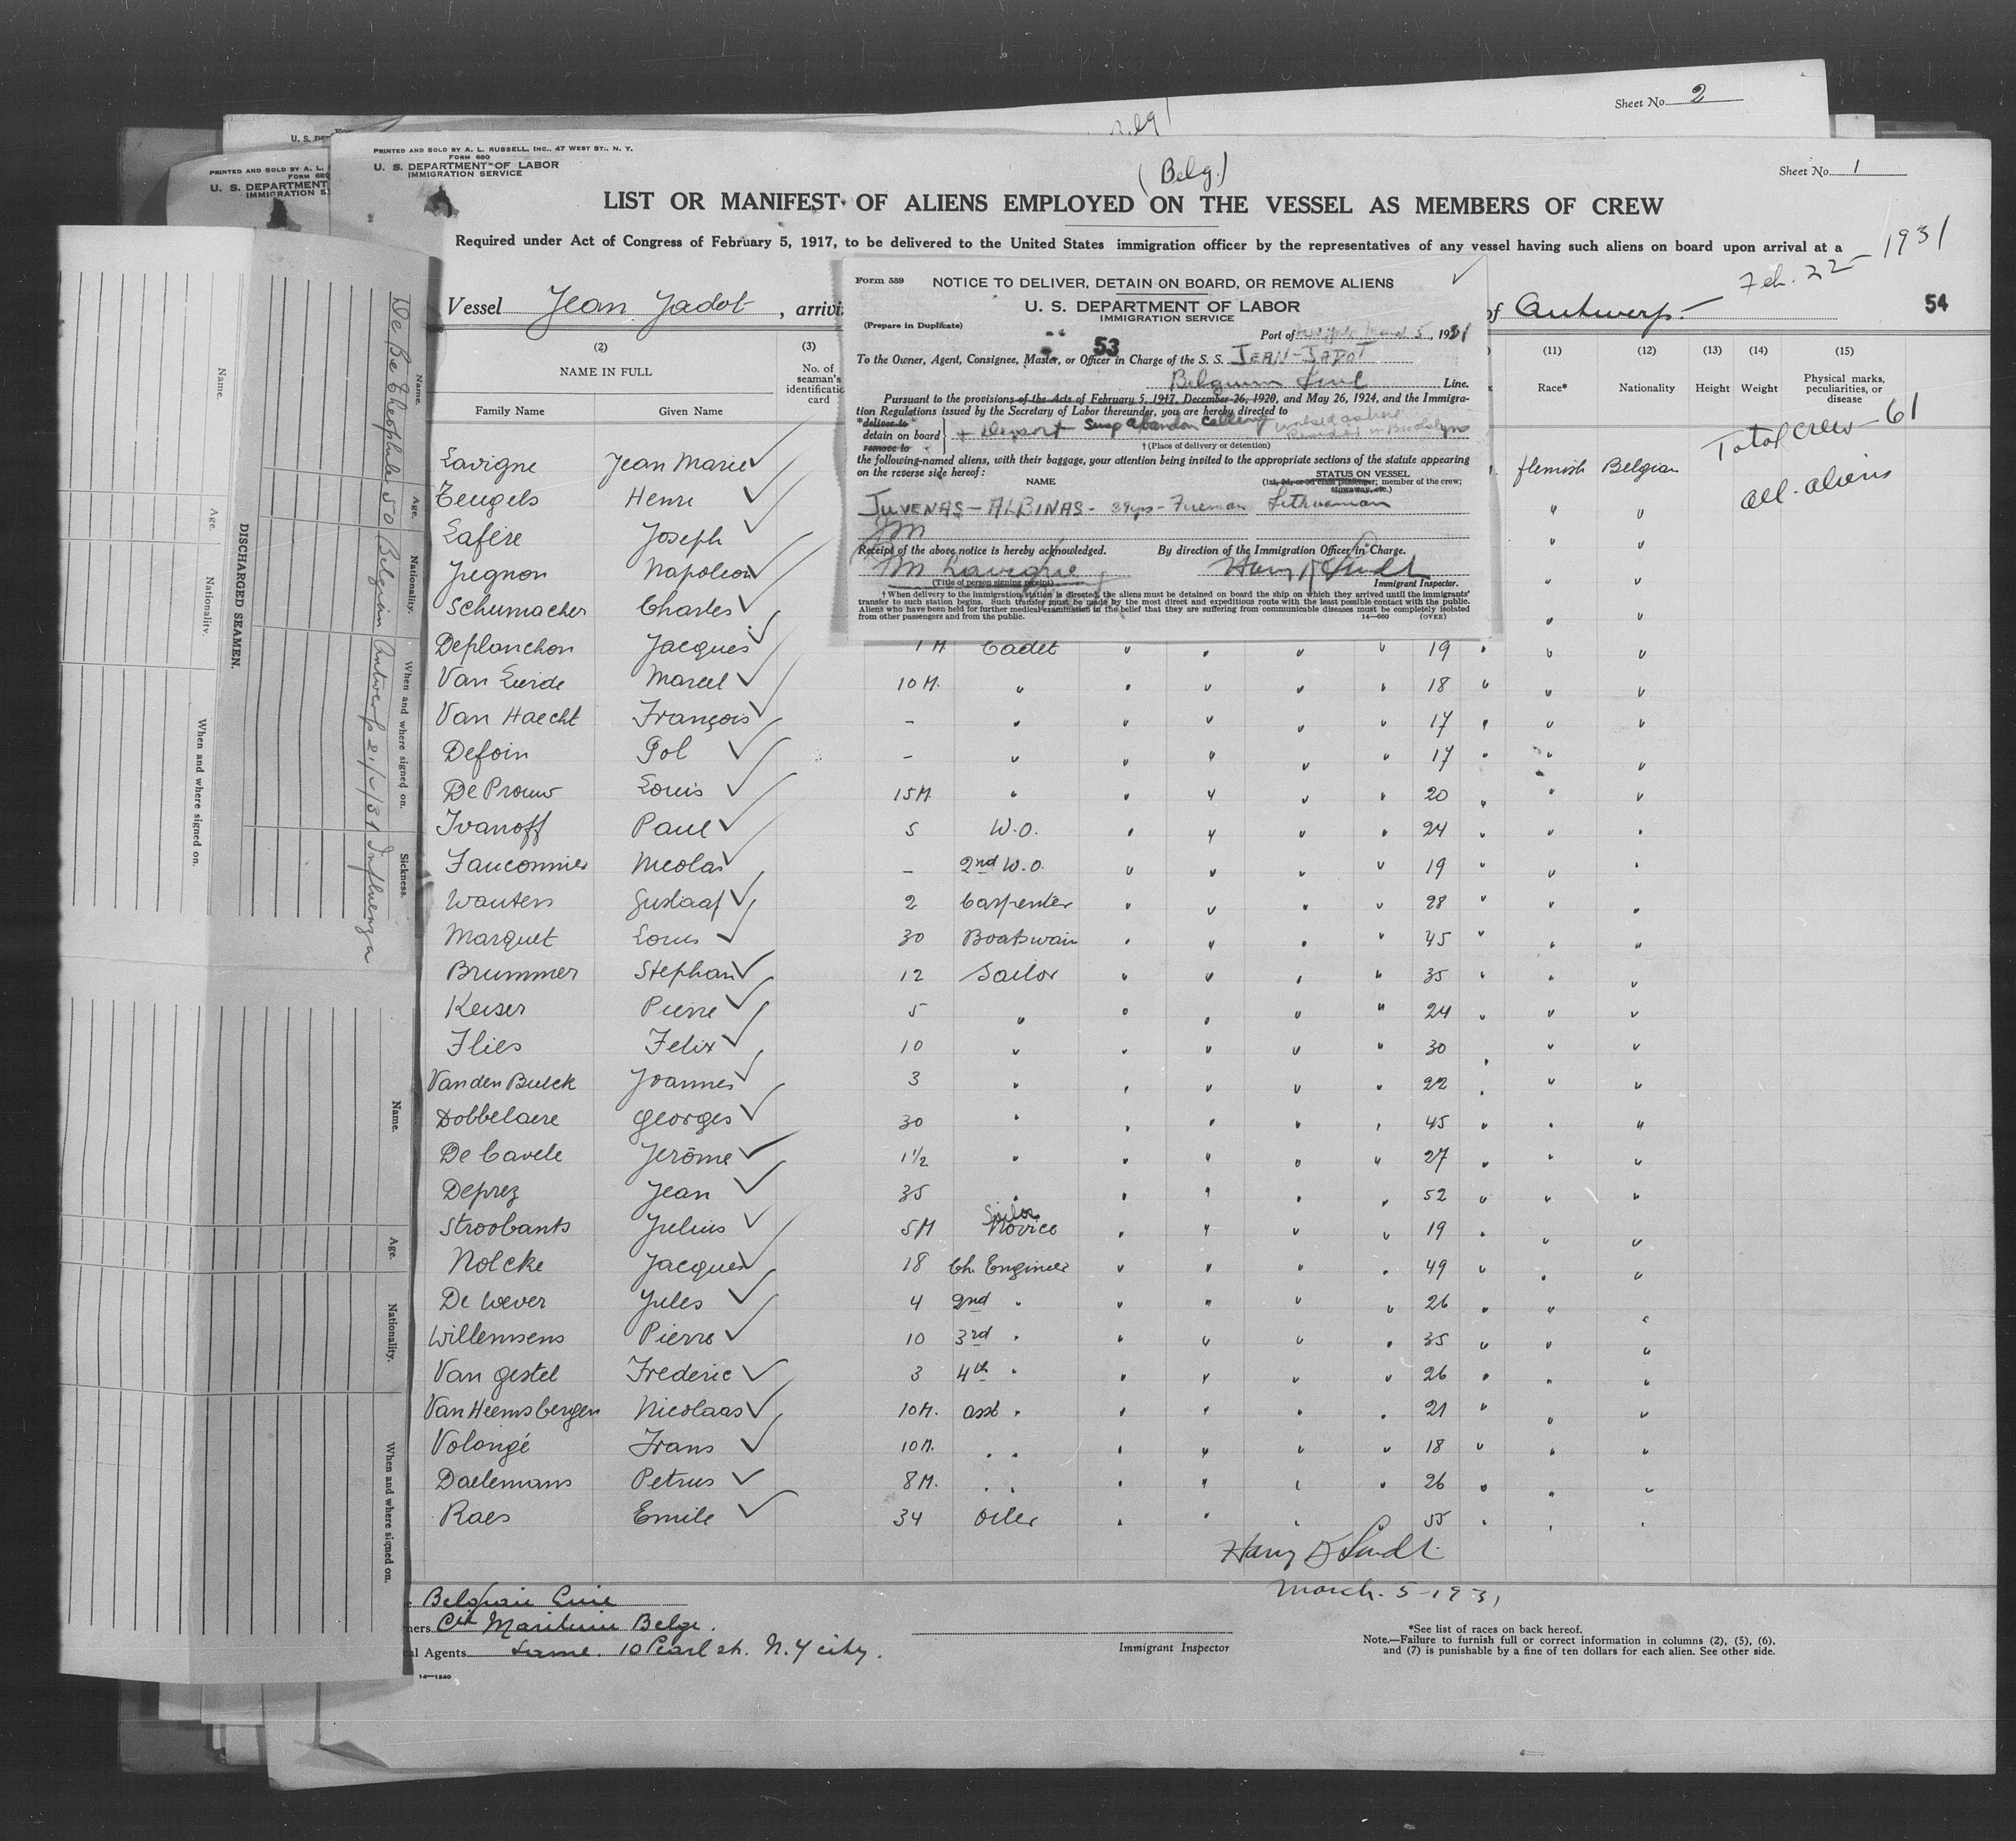 Sheet No. 2
(Belg)
PRINTED AND SOLD BY A. L. RUSSELL, INC., 47 WEST ST., N. Y.
FORM 680
U. S. DEPARTMENT OF LABOR
IMMIGRATION SERVICE
Sheet No. 1
(Belg.)
LIST OR MANIFEST OF ALIENS EMPLOYED ON THE VESSEL AS MEMBERS OF CREW
Required under Act of Congress of February 5, 1917, to be delivered to the United States immigration officer by the representatives of any vessel having such aliens on board upon arrival at a
Vessel Jean Jadot, arrivi
of Antwerp. Feb. 22 - 1931
54
(2) (3) (11) (12) (13) (14) (15)
NAME IN FULL No. of seaman's identification card Race* Nationality Height Weight Physical marks, peculiarities, or disease
Family Name Given Name
Total crew - 61
all aliens
Form 559 NOTICE TO DELIVER, DETAIN ON BOARD, OR REMOVE ALIENS
U. S. DEPARTMENT OF LABOR
IMMIGRATION SERVICE
(Prepare in Duplicate)
Port of March 5, 1931
53
To the Owner, Agent, Consignee, Master, or Officer in Charge of the S. S. JEAN-JADOT
Belgium Line Line.
Pursuant to the provisions of the Acts of February 5, 1917, December 26, 1920, and May 26, 1924, and the Immigra-
tion Regulations issued by the Secretary of Labor thereunder, you are hereby directed to
*deliver to
detain on board + Deport - Susp abandon Calling
remove to
† (Place of delivery or detention)
the following-named aliens, with their baggage, your attention being invited to the appropriate sections of the statute appearing
on the reverse side hereof:
NAME
STATUS ON VESSEL
(1st, 2d, or 3d class passenger; member of the crew; stowaway, etc.)
JUVENAS - ALBINAS - 39yrs - Fireman Lithuanian
Receipt of the above notice is hereby acknowledged. By direction of the Immigration Officer in Charge.
M Lavigne Harry D Lindt
(Title of person signing receipt) Immigrant Inspector.
† When delivery to the immigration station is directed, the aliens must be detained on board the ship on which they arrived until the immigrants'
transfer to such station begins. Such transfer must be made by the most direct and expeditious route with the least possible contact with the public.
Aliens who have been held for further medical examination in the belief that they are suffering from communicable diseases must be completely isolated
from other passengers and from the public.
14—660 (OVER)
Lavigne Jean Marie flemish Belgian
Teugels Henri " "
Lafère Joseph " "
Pegnon Napoleon " "
Schumacher Charles " "
Deplanchon Jacques 1 M Cadet " " " " 19 " " "
Van Eerde Marcel 10 M. " " " " " 18 " " "
Van Haecht François - " " " " " 17 " " "
Defoin Pol - " " " " " 17 " " "
De Prouw Louis 15 M. " " " " " 20 " " "
Ivanoff Paul 5 W.O. " " " " 24 " " "
Fauconnier Nicolas - 2nd W.O. " " " " 19 " " "
Wauters Gustaaf 2 Carpenter " " " " 28 " " "
Marquet Louis 30 Boatswain " " " " 45 " " "
Brummer Stephan 12 Sailor " " " " 35 " " "
Keiser Pierre 5 " " " " " 24 " " "
Flies Felix 10 " " " " " 30 " " "
Van den Bulck Joannes 3 " " " " " 22 " " "
Dobbelaere Georges 30 " " " " " 45 " " "
De Cavele Jerôme 1 1/2 " " " " " 27 " " "
Deprez Jean 35 " " " " " 52 " " "
Stroobants Julius 5 M Sailor Novice " " " " 19 " " "
Nolcke Jacques 18 Ch. Engineer " " " " 49 " " "
De Wever Jules 4 2nd " " " " " 26 " " "
Willemsens Pierre 10 3rd " " " " " 35 " " "
Van Gestel Frederic 3 4th " " " " " 26 " " "
Van Heemsbergen Nicolaas 10 M. asst " " " " " 21 " " "
Volongé Frans 10 M. " " " " " " 18 " " "
Daelemans Petrus 8 M. " " " " " " 26 " " "
Raes Emile 34 Oiler " " " " 55 " " "
Harry D Lindt
March. 5 - 1931
Belgian Line
ners Cie Maritime Belge.
al Agents Same. 10 Pearl st. N. Y city.
Immigrant Inspector
*See list of races on back hereof.
Note.—Failure to furnish full or correct information in columns (2), (5), (6),
and (7) is punishable by a fine of ten dollars for each alien. See other side.
14—1240
PRINTED AND SOLD BY A. L.
FORM 680
U. S. DEPARTMENT
IMMIGRATION S
U. S. DE
DISCHARGED SEAMEN.
Name. Age. Nationality. When and where signed on.
Name. Age. Nationality. When and where signed on. Sickness.
De Be Theophule 50 Belgian Antwerp 21/2/31 Influenza
Name. Age. Nationality. When and where signed on.